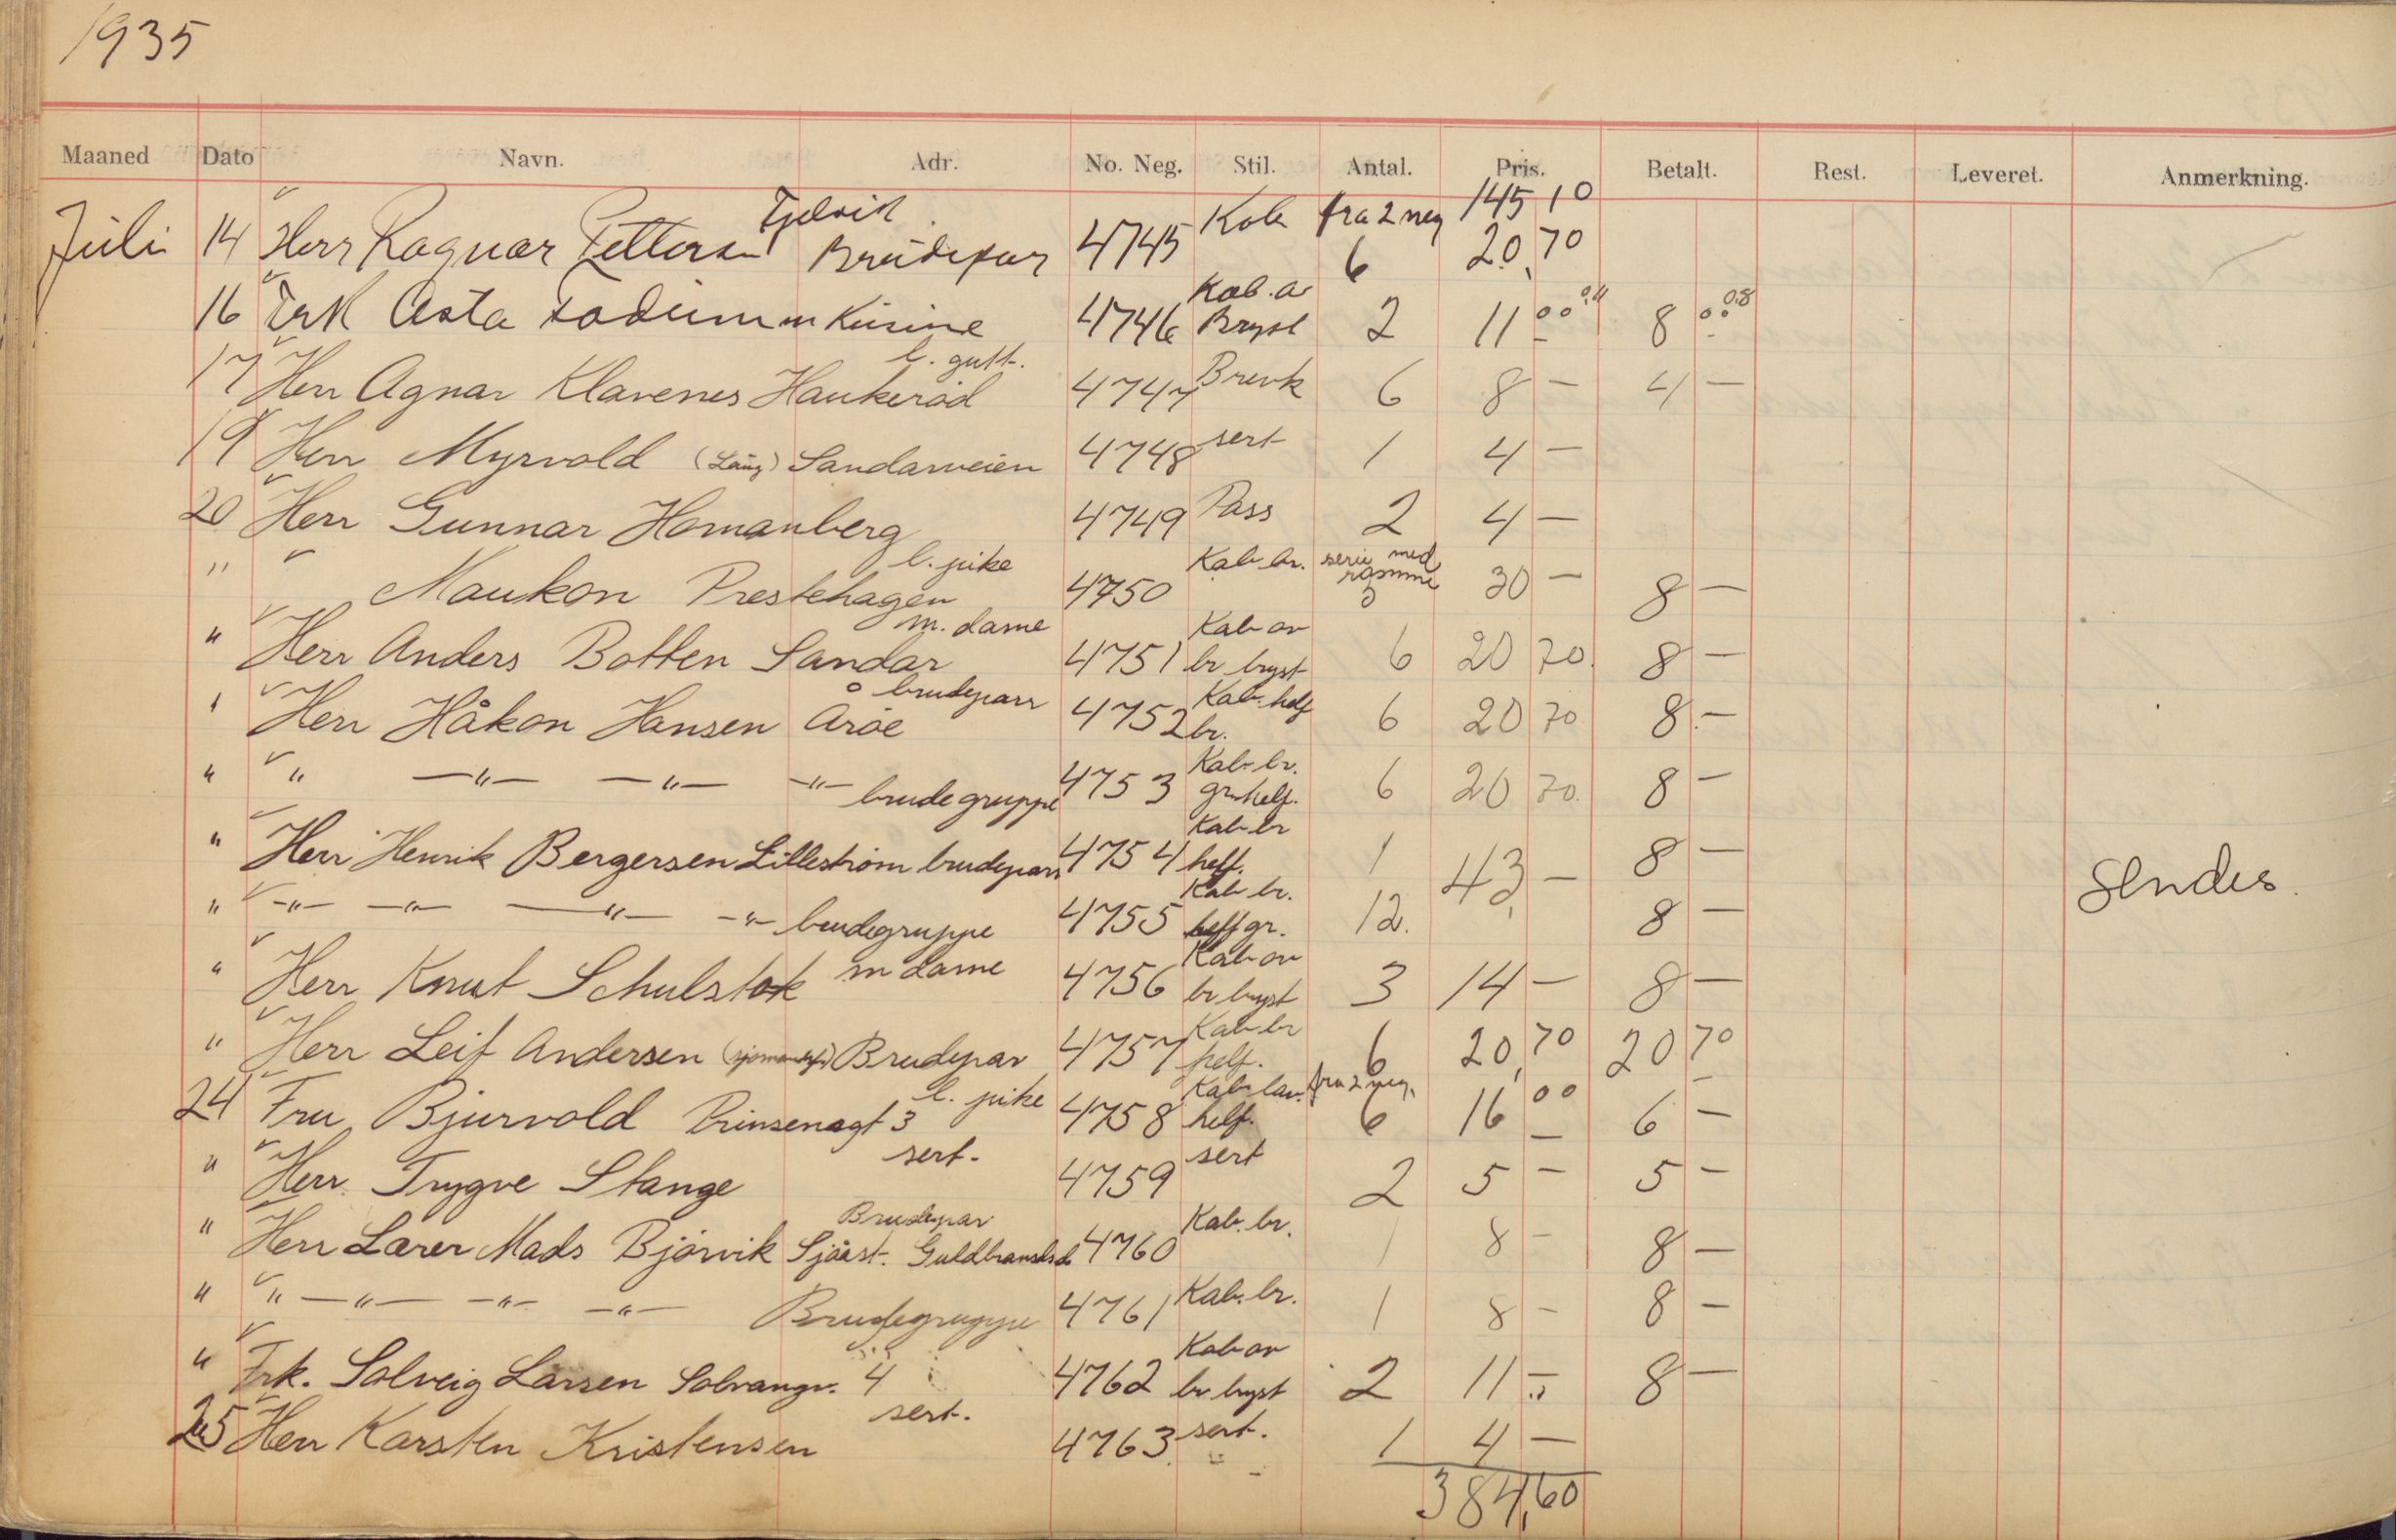 1935
Maaned Dato Navn. Adr. No. Neg. Stil. Antal. Pris. Betalt. Rest. Leveret. Anmerkning.
145 10
Juli 14 Herr Ragnar Petterson Brudepar 4745 Kab fra 2 neg 6 20,70
16 Frk Asta m Kusine 4746 Kab. Bryst 2 11 00 8 00
17 Herr Agnar Klavenes Haukeröd l. gutt. 4747 Brevk 6 8 — 4 —
19 Herr Myrvold Sandarveien 4748 sert 1 4 —
20 Herr Gunnar Homanberg 4749 Pass 2 4 —
" " Maukon Prestehagen l. pike 4750 Kab br. serie med ramme 3 30 — 8 —
" Herr Anders Botten Sandar m. dame 4751 Kab ov br bryst 6 20 70 8 —
" Herr Håkon Hansen Aröe brudeparr 4752 Kab. helf br. 6 20 70 8 —
" " —"— —"— —"— brudegruppe 4753 Kab br. gr. helf. 6 20 70 8 —
" Herr Henrik Bergersen Lilleström brudeparr 4754 Kab br helf. 1 43,— 8 —
" —"— —"— —"— —"— brudegruppe 4755 Kab br. helf gr. 12. 8 —
Sendes.
" Herr Knut Schulstok m dame 4756 Kab ov br bryst 3 14 — 8 —
" Herr Leif Andersen Brudepar 4757 Kab br helf. 6 20,70 20 70
24 Fru Bjurvold Prinsensgt 3 l. pike 4758 Kab helf. fra 2 neg. 6 16 00 6 —
" Herr Trygve Stange sert. 4759 sert 2 5 — 5 —
" Herr Lærer Mads Björvik Brudepar 4760 Kab. br. 1 8 — 8 —
" " —"— —"— —"— Brudegruppe 4761 Kab. br. 1 8 — 8 —
" Frk. Solveig Larsen Solvangv. 4 4762 Kab ov br bryst 2 11 — 8 —
25 Herr Karsten Kristensen sert. 4763 sert. 1 4 —
384,60